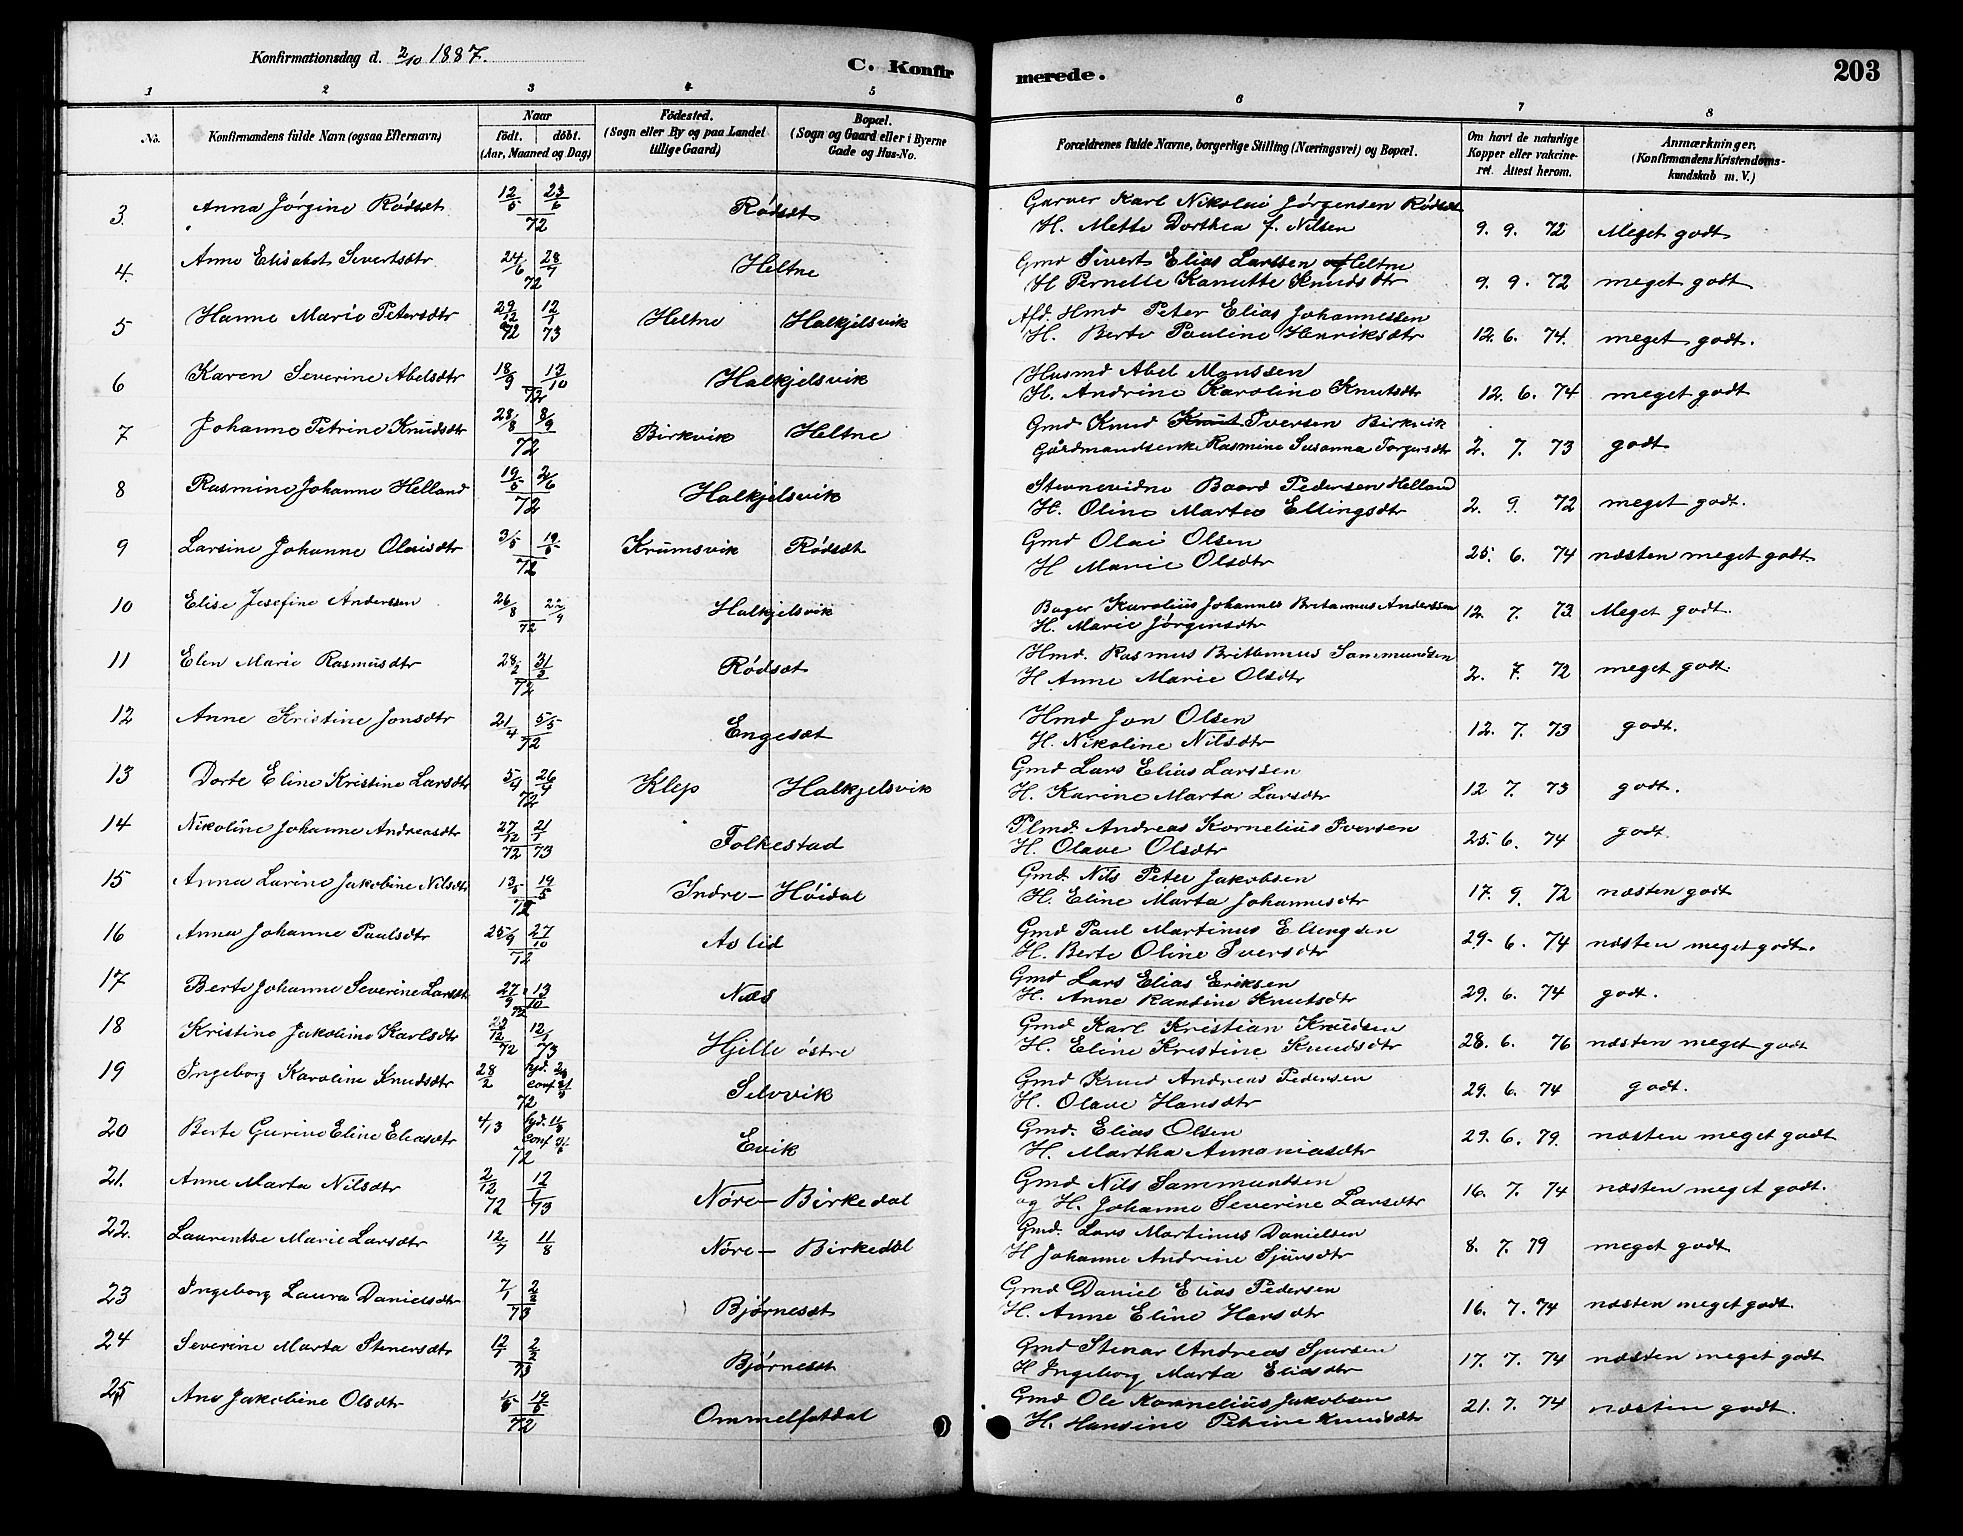 Konfirmationsdag d. 2/10 1887.
C. Konfirmerede.
203
1 2 3 4 5 6 7 8
No.
Konfirmandens fulde Navn (ogsaa Efternavn)
Naar
födt. döbt.
(Aar, Maaned og Dag)
Födested.
(Sogn eller By og paa Landet tillige Gaard)
Bopæl.
(Sogn og Gaard eller i Byerne Gade og Hus-No.
Forældrenes fulde Navne, borgerlige Stilling (Næringsvei) og Bopæl.
Om havt de naturlige Kopper eller vakcineret. Attest herom.
Anmærkninger.
(Konfirmandens Kristendomskundskab m. V.)
3. Anna Jørgine Rødsæt 12/5 23/6 72 Rødsæt Garver Karl Nikolai Jørgensen Rødsæt
H. Mette Dorthea f. Nilsen 9. 9. 72 Meget godt
4. Anne Elisabet Sivertsdtr 24/6 28/7 72 Heltne Gmd Sivert Elias Larssen Heltne
H Pernelle Kanutte Knudsdtr 9. 9. 72 meget godt
5 Hanne Marie Petersdtr 29/12 72 12/1 73 Heltne Halkjelsvik Afd. Hmd Peter Elias Johannessen
H. Berte Pauline Henriksdtr 12. 6. 74. meget godt.
6 Karen Severine Abelsdtr 18/9 13/10 72 Halkjelsvik Husmd Abel Monssen
H. Andrine Karoline Knutsdtr 12. 6. 74 meget godt
7 Johanne Petrine Knudsdtr 28/8 8/9 72 Birkvik Heltne Gmd Knud Knut Iversen Birkvik
Gårdmandsenke Rasmine Susanna Torgersdtr 2. 7. 73 godt
8 Rasmine Johanne Helland 19/5 2/6 72 Halkjelsvik Stevnevidne Baard Pedersen Helland
H. Oline Martea Ellingsdtr 2. 9. 72 meget godt.
9 Larsine Johanne Olaisdtr 3/5 19/5 72 Krumsvik Rødsæt Gmd Olai Olsen
H Marie Olsdtr 25. 6. 74 næsten meget godt.
10 Elise Josefine Anderssen 26/8 22/9 72 Halkjelsvik Bager Karolius Johannes Britannus Anderssen
H. Marie Jørgensdtr 12. 7. 73. Meget godt.
11 Elen Marie Rasmusdtr 28/2 31/3 72 Rødsæt Hmd. Rasmus Britannus Sammundsen
H Anne Marie Olsdtr 2. 7. 72 meget godt.
12 Anne Kristine Jonsdtr 21/4 5/5 72 Engesæt Hmd Jon Olsen
H. Nikoline Nilsdtr 12. 7. 73 godt.
13 Dorte Eline Kristine Larsdtr 5/9 26/9 72 Klep Halkjelsvik Gmd Lars Elias Larssen
H. Karine Marta Larsdtr 12 7. 73 godt.
14 Nikoline Johanne Andreasdtr 27/12 72 21/1 73 Folkestad Plmd. Andreas Kornelius Iversen
H. Olave Olsdtr 25. 6. 74 godt.
15 Anna Larine Jakobine Nilsdtr 13/5 19/5 72 Indre- Höidal Gmd Nils Peter Jakobsen
H. Eline Marta Johannesdtr 17. 9. 72 næsten godt
16 Anna Johanne Paulsdtr 25/9 27/10 72 Aslid Gmd Paul Martinus Ellingsen
H. Berte Oline Iversdtr 29. 6. 74 næsten meget godt.
17 Berte Johanne Severine Larsdt 27/9 13/10 72 Næs Gmd Lars Elias Eriksen
H. Anne Ransine Knutsdtr 29. 6. 74 godt.
18 Kristine Jakobine Karlsdtr 12 72 12/1 73 Hjelle östre Gmd Karl Kristian Knudsen
H. Eline Kristine Knudsdtr 28. 6. 76 næsten meget godt
19 Ingeborg Karoline Knudsdtr 28/2 72 hjd. conf Selvvik Gmd Knud Andreas Pedersen
H. Olave Hansdtr 29. 6. 74 godt.
20 Berte Gurine Eline Eliasdtr 4/3 72 hjd. conf Evik Gmd. Elias Olsen
H. Martha Annaniasdtr 29. 6. 79. næsten meget godt
21. Anne Marta Nilsdtr 2/12 72 12/1 73 Nöre- Birkedal Gmd Nils Sammundsen
og H. Johanne Severine Larsdtr 16. 7. 74 næsten meget godt.
22. Laurentse Marie Larsdtr 12/7 11/8 Nöre- Birkedal Gmd. Lars Martinus Danielsen
H Johanne Andrine Sjursdtr 8. 7. 79 meget godt
23 Ingeborg Laura Danielsdtr 7/1 2/2 73 Bjørnesæt Gmd Daniel Elias Pedersen
H. Anne Eline Hansdtr 16. 7. 74 næsten meget godt.
24 Severine Marta Stenersdtr 12/1 2/2 73 Bjørnesæt Gmd Stenar Andreas Sjursen
H Ingeborg Marta Eliasdtr 17. 7. 74 næsten meget godt
25 Ane Jakobine Olsdtr 1/5 19/5 72 Ommelfotdal Gmd Ole Kornelius Jakobsen
H. Hansine Petrine Knudsdtr 21. 7. 74 næsten godt.